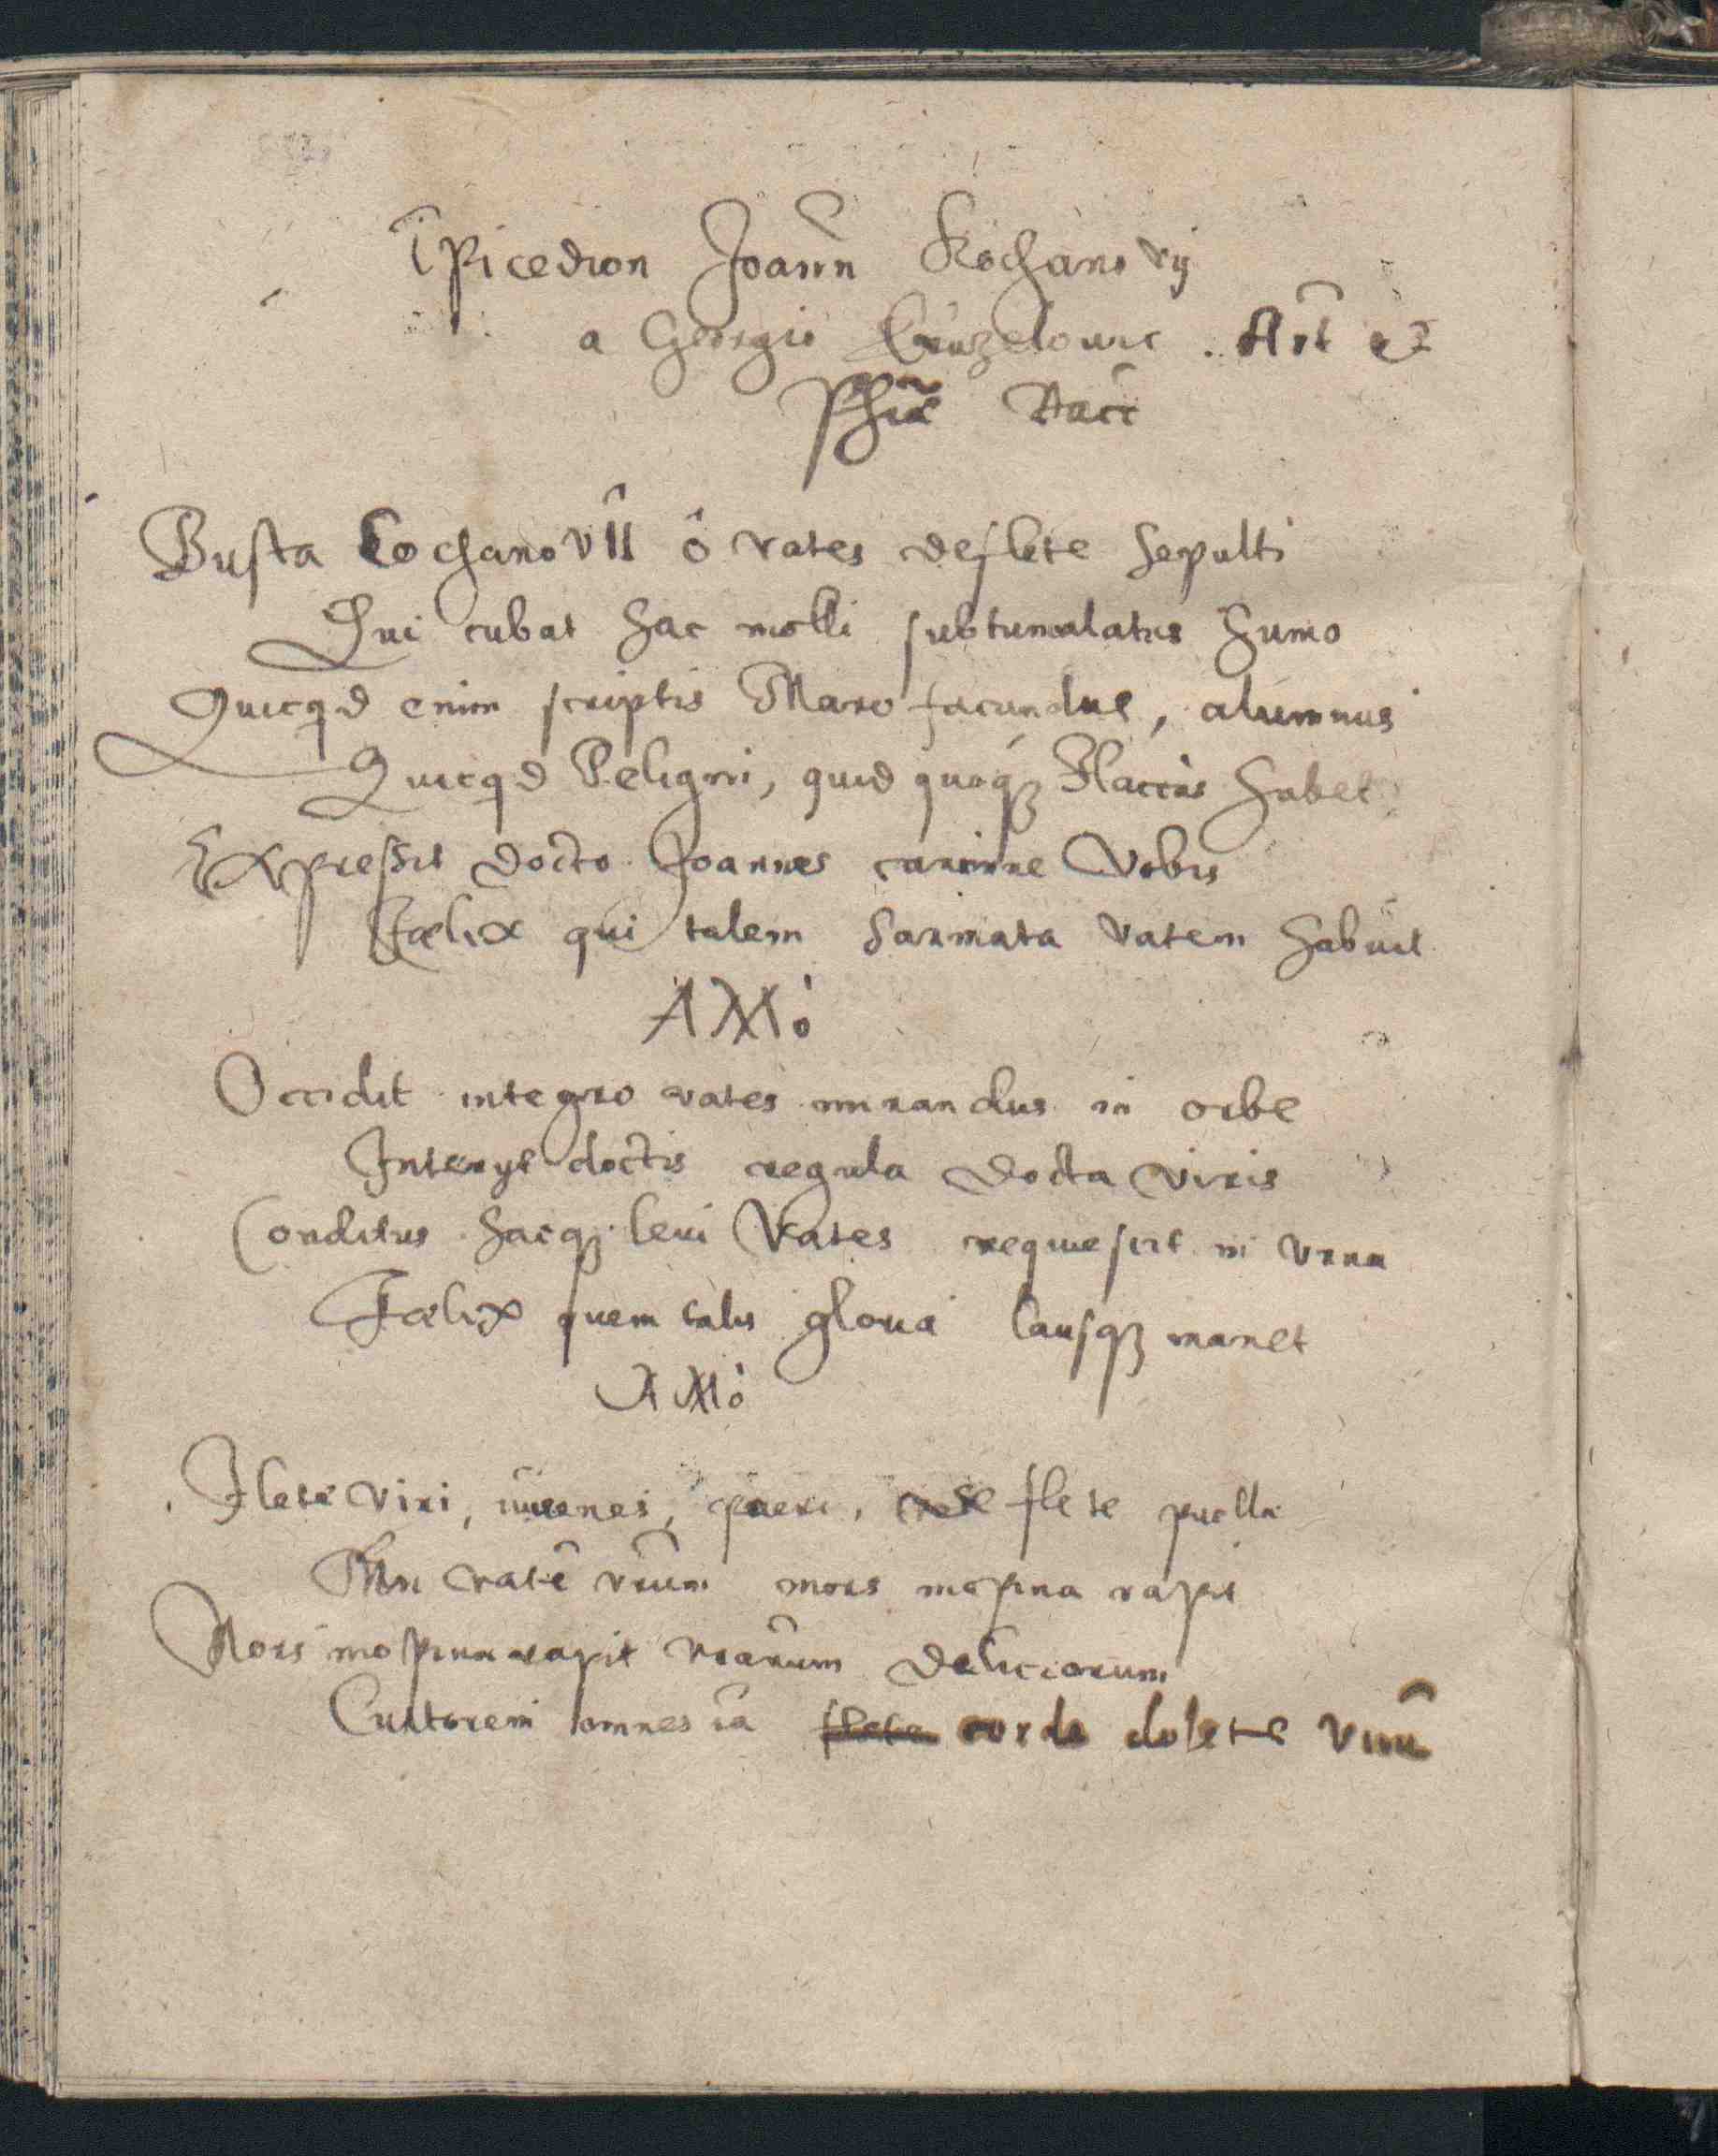 Epicedion Joañn Kochanovij
a Georgio . Art̃ et
Phiæ̃ Bacc̃
Busta Cochanovii ô vates deflete sepulti
Qui cubat hac molli subtumulatus humo
Quicqd enim scriptis Maro facundus, alumnus
Quicqd Peligni, quid quoqȝ Flaccus habet
Expressit docto Joannes carmine vobis
Fœlix qui talem Sarmata vatem habuit
Occidit integro vates mirandus in orbe
Interijt doctis regula docta viris
Conditus hacqȝ levi Vates requiescit in vrna
Fœlix quem talis gloria lausqȝ manet
Flete viri, iuuenes, pueri, flete puellæ
vatẽ vr̃um mors inopina rapit
Mors inopina rapit vr̃arum deliciarum
omnes iã flete corde dolete virũ